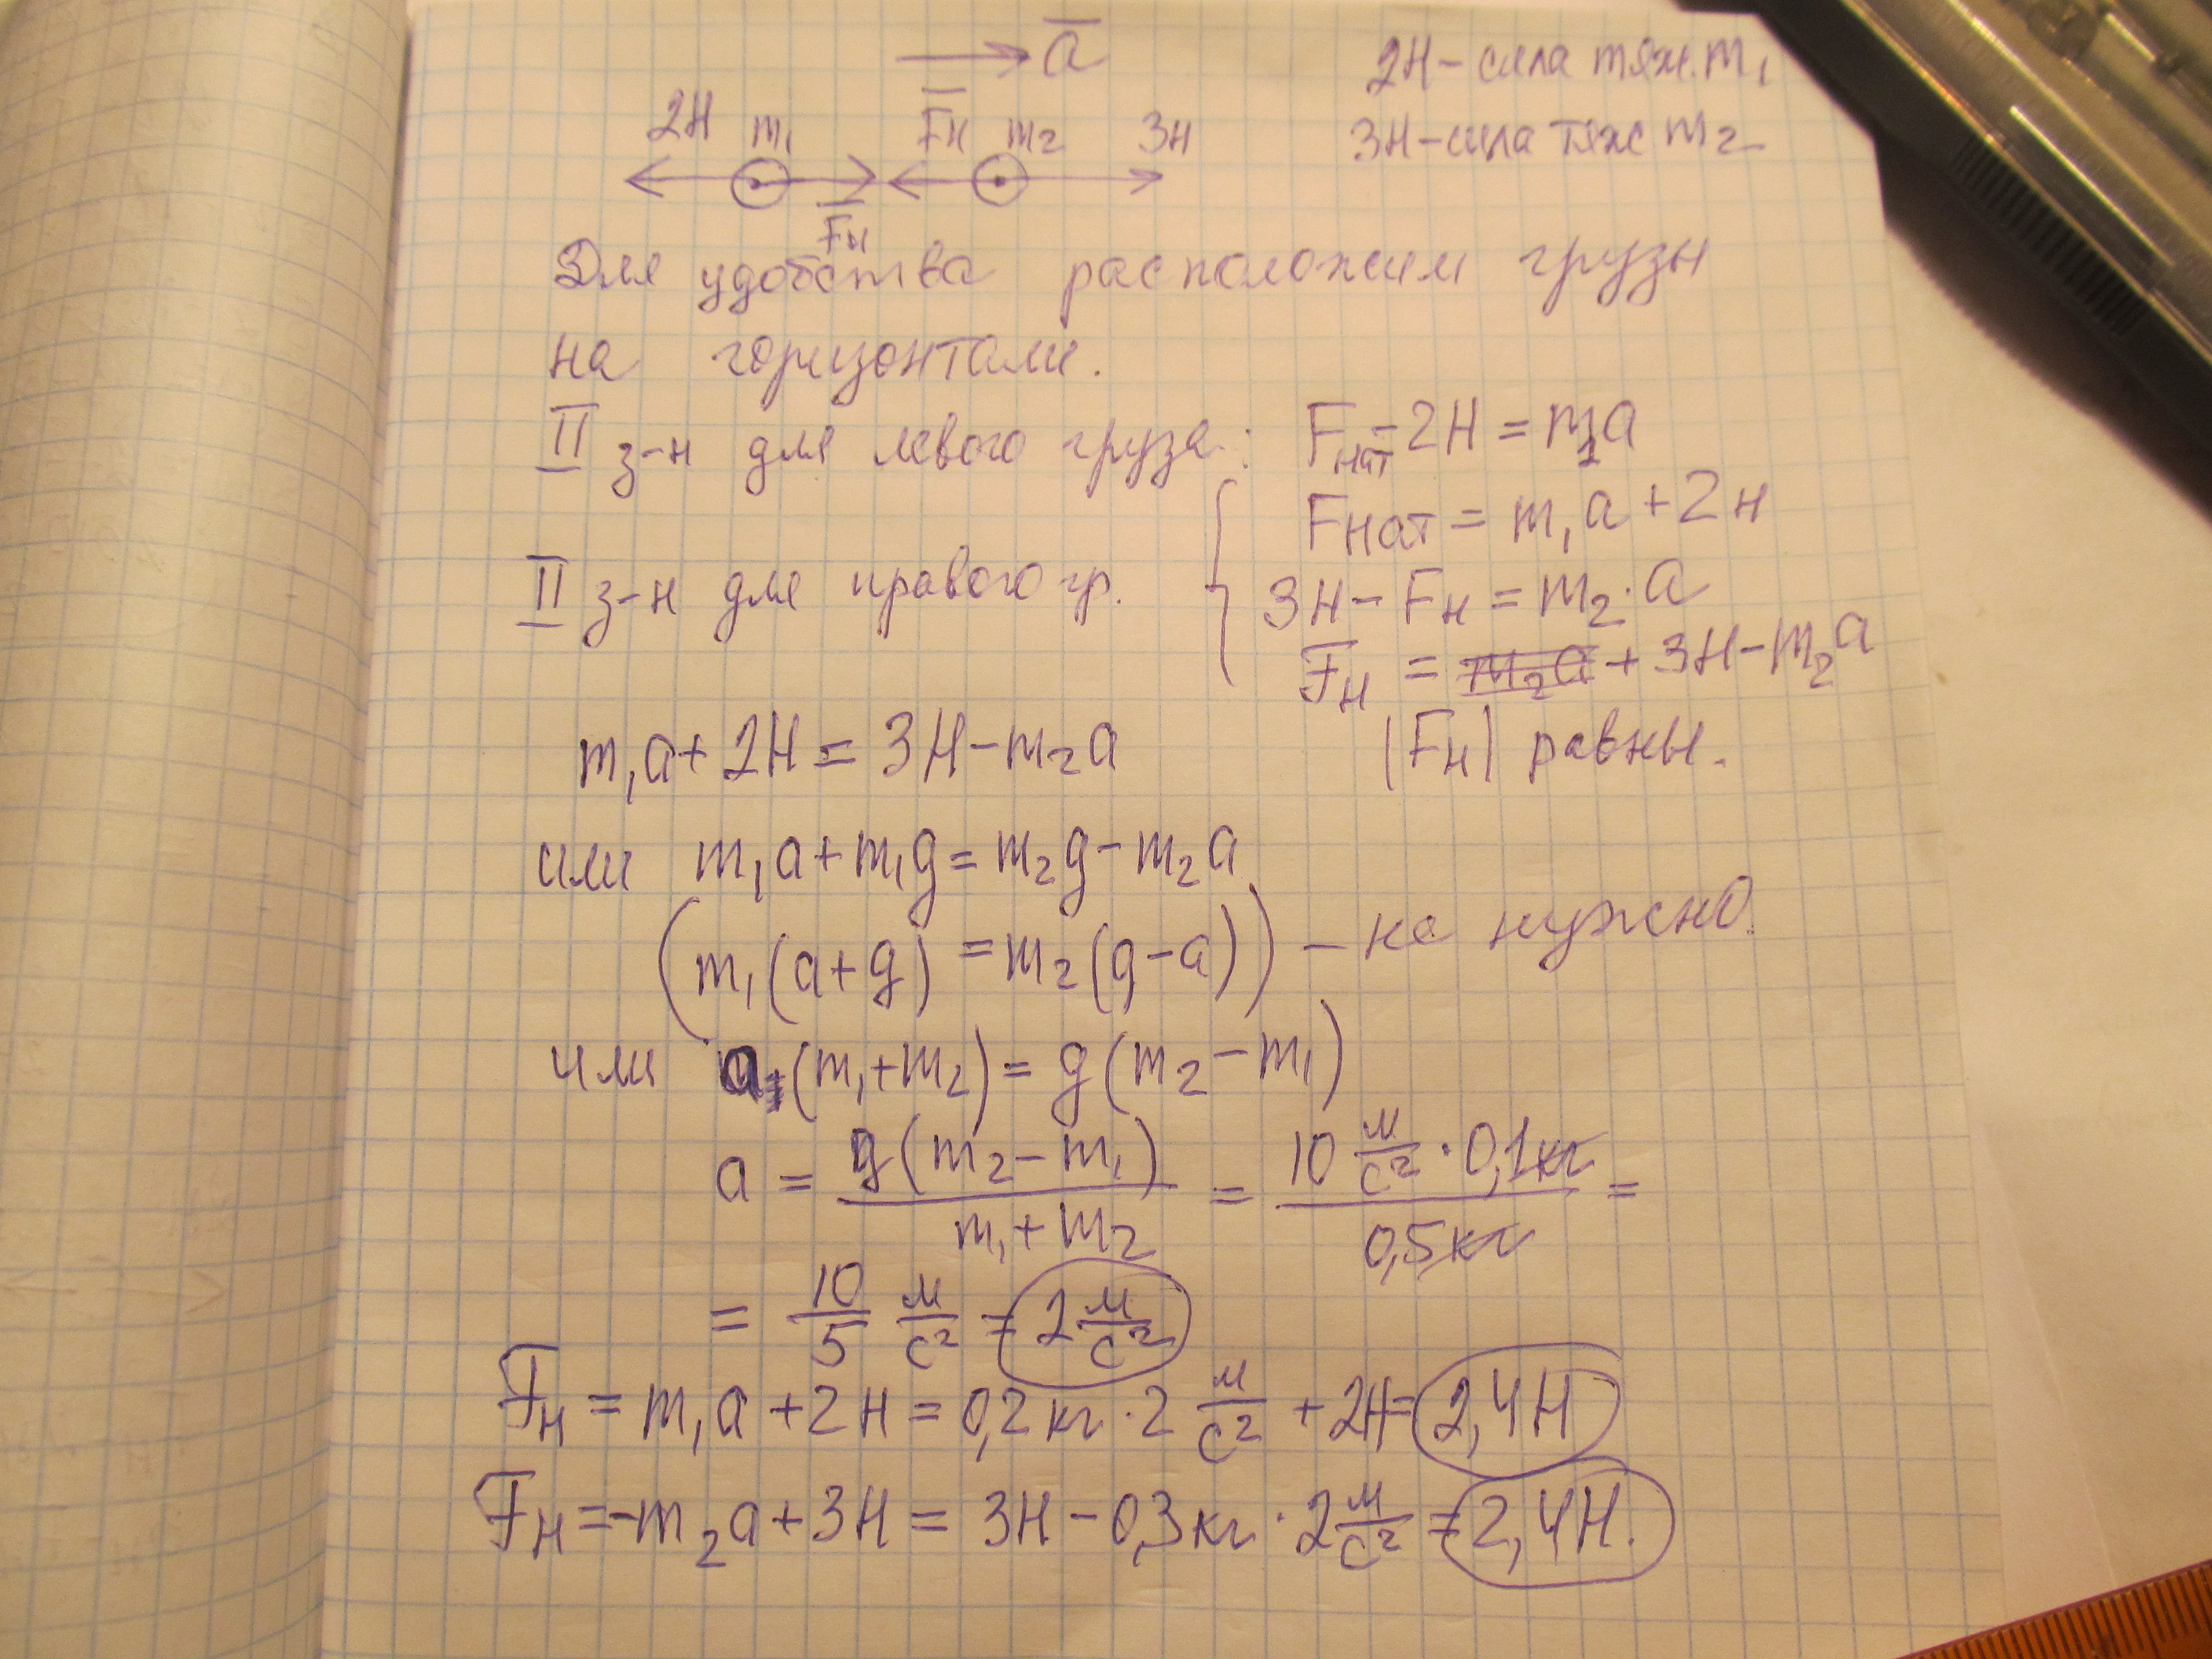 a
2Н m₁ Fн m₂ 3Н
Fн
2Н – сила тяж. m₁
3Н – сила тяж m₂
Для удобства расположим грузы
на горизонтали.
II з-н для левого груза: Fнат - 2Н = m₁a
Fнат = m₁a + 2Н
II з-н для правого гр. 3Н - Fн = m₂·a
Fн = m₂a + 3Н - m₂a
m₁a + 2Н = 3Н - m₂a |Fн| равны.
или m₁a + m₁g = m₂g - m₂a
(m₁(a+g) = m₂(g-a)) – не нужно.
или a·(m₁+m₂) = g(m₂-m₁)
a = g(m₂-m₁)/(m₁+m₂) = 10 м/с² · 0,1кг / 0,5кг =
= 10/5 м/с² = 2 м/с²
Fн = m₁a + 2Н = 0,2кг · 2 м/с² + 2Н = 2,4Н
Fн = -m₂a + 3Н = 3Н - 0,3кг · 2 м/с² = 2,4Н.